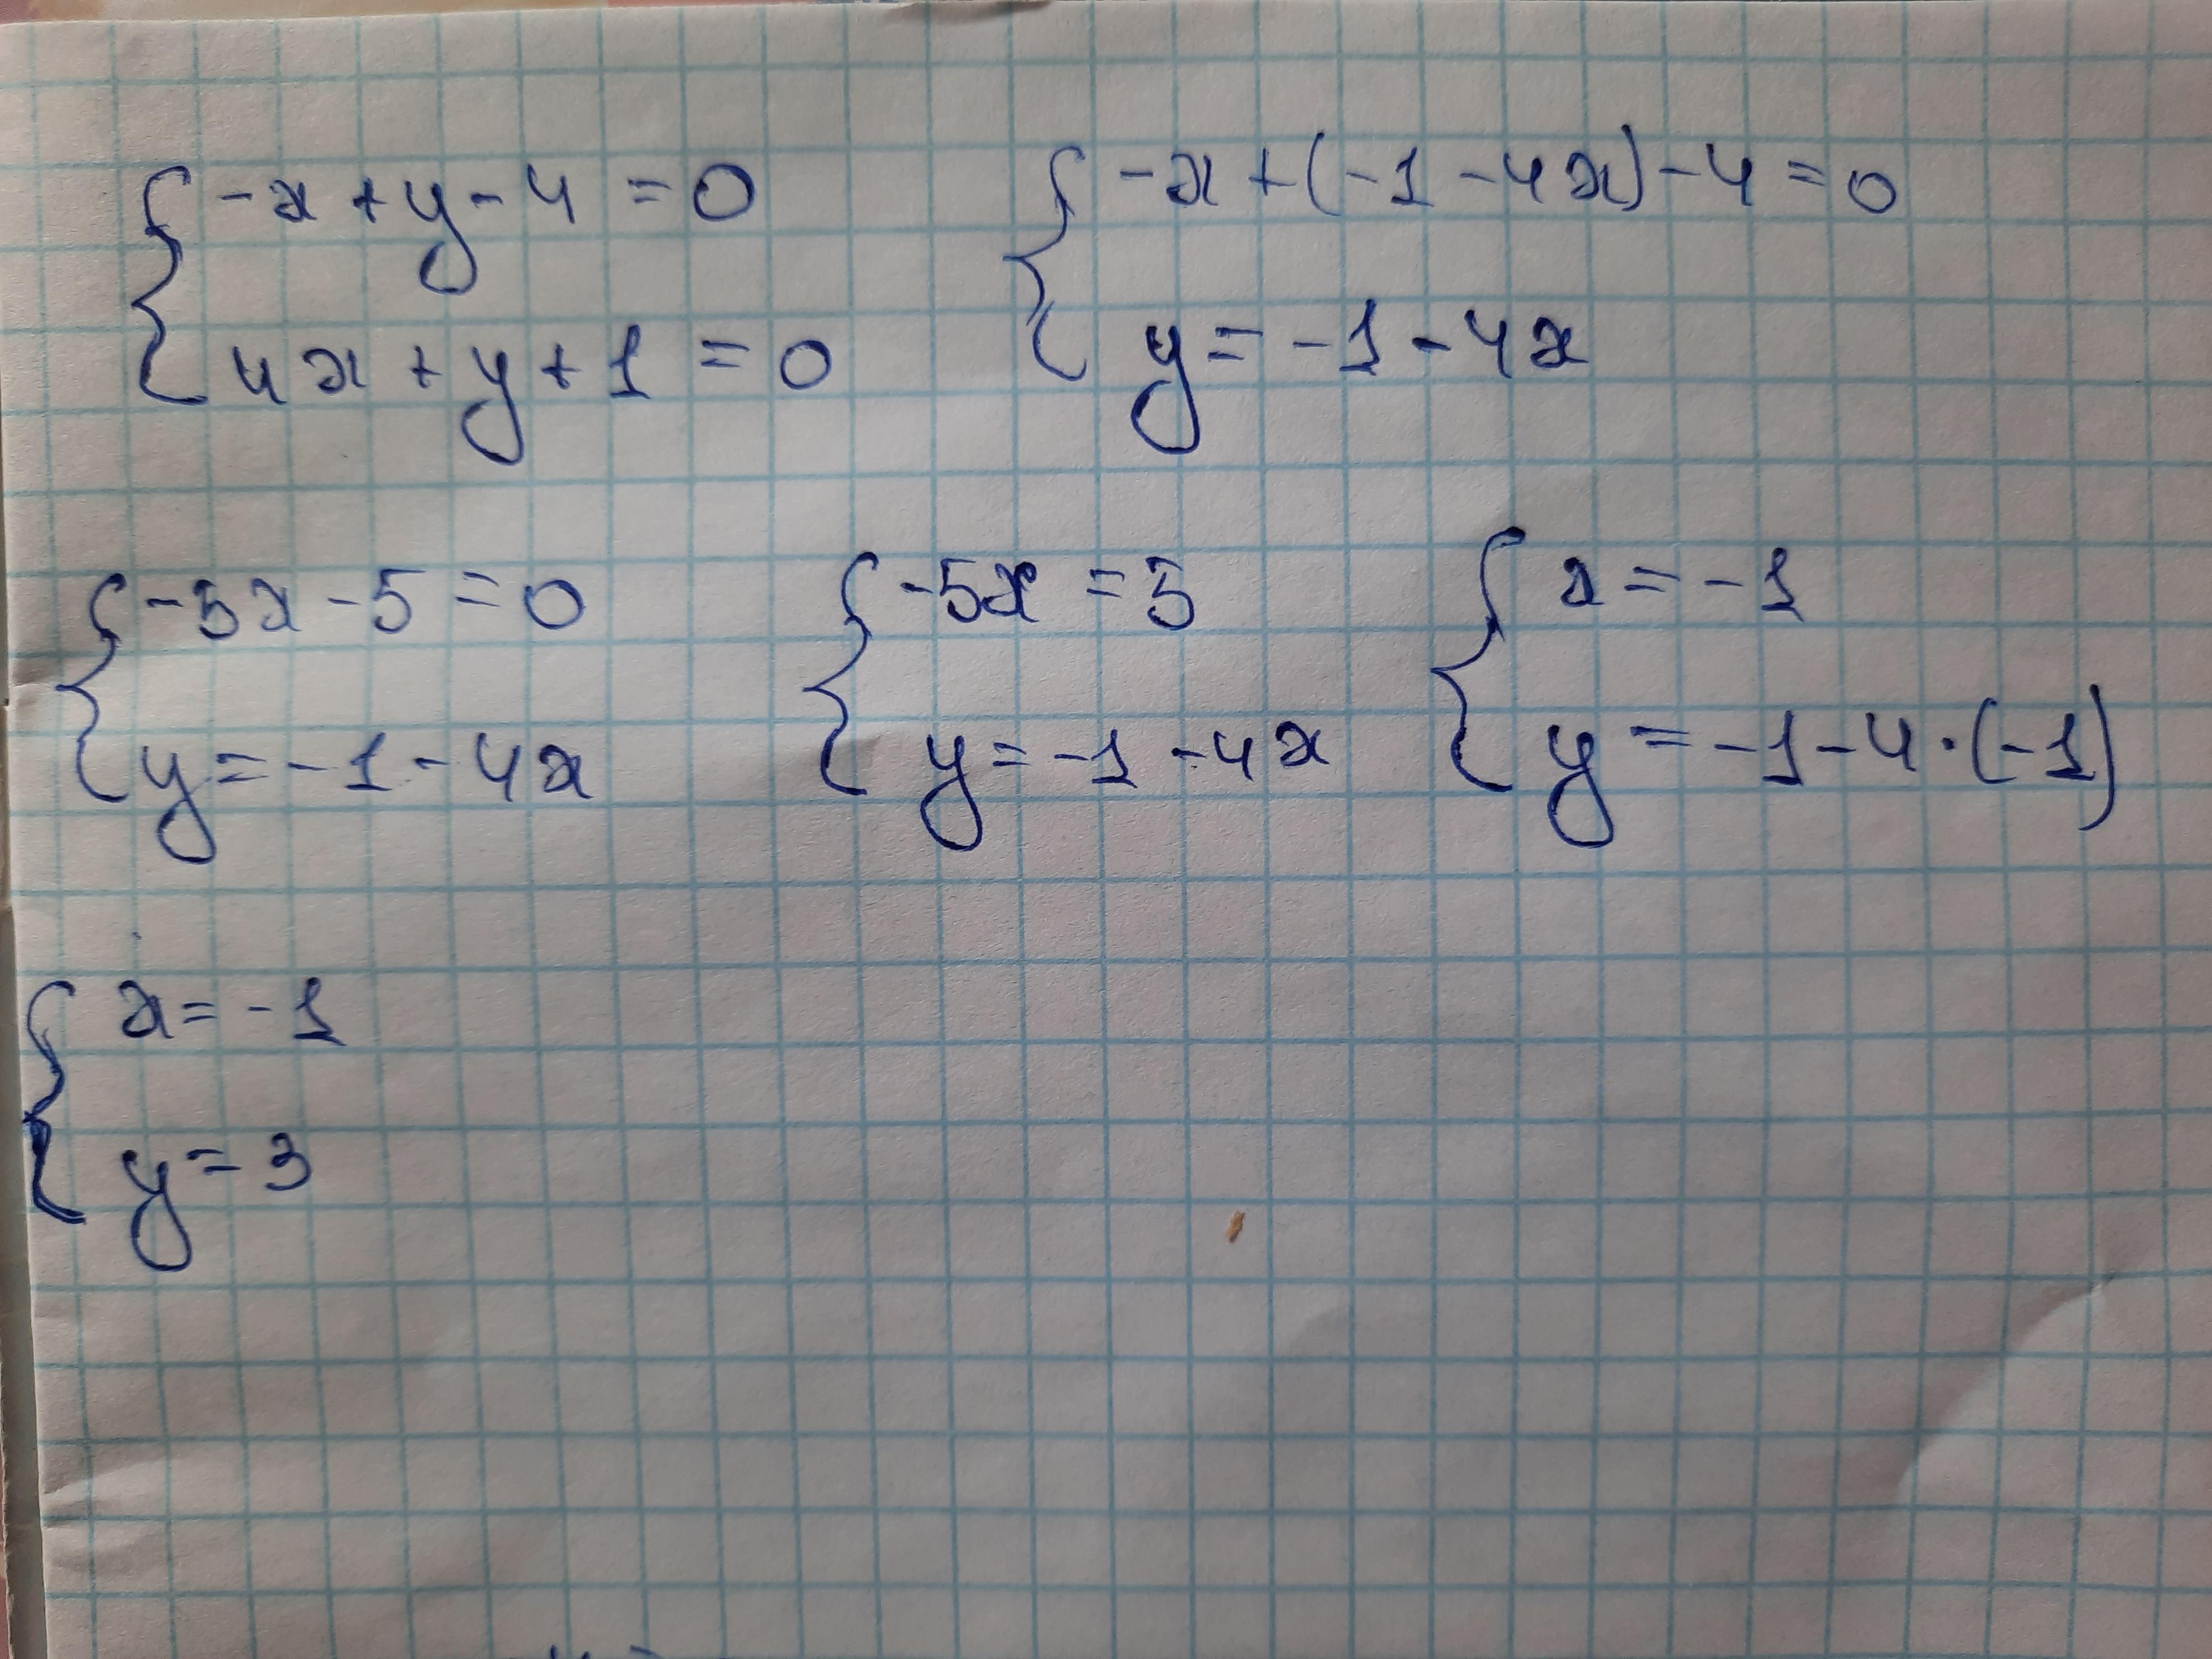 { -x + y - 4 = 0
4x + y + 1 = 0
{ -x + (-1 - 4x) - 4 = 0
y = -1 - 4x
{ -5x - 5 = 0
y = -1 - 4x
{ -5x = 5
y = -1 - 4x
{ x = -1
y = -1 - 4 · (-1)
{ x = -1
y = 3